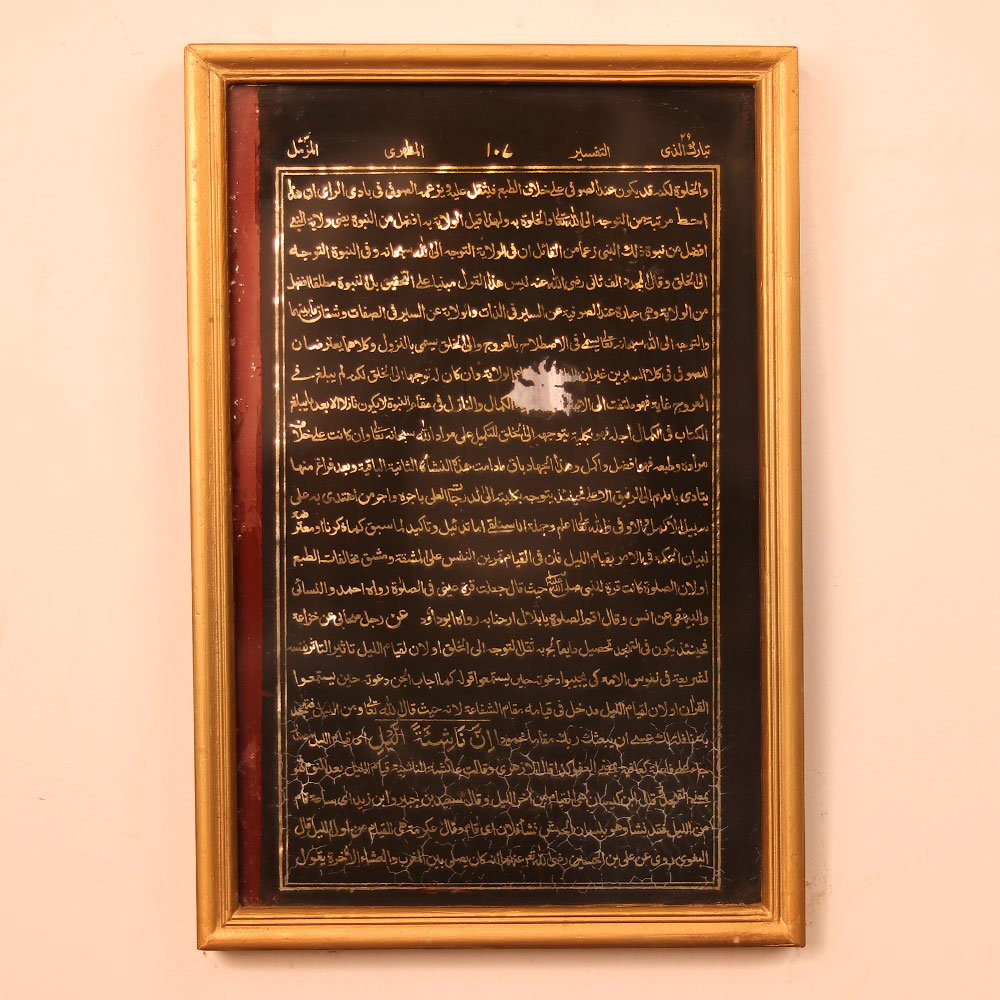 تبارك الذى ٢٩ التفسير ١٠٧ المظهرى المزمل
والخلوة لكنه قد يكون عند الصوفى على خلاف الطبع فيثقل عليه ويزعمه الصوفى فى بادى الراى ان هذا
احط مرتبة من التوجه الى الله تعالى والخلوة به ولهذا قيل الولاية به افضل من النبوة يعنى ولاية النبى
افضل من نبوة ذلك النبى زعما من القائل ان فى الولاية التوجه الى الله سبحانه وفى النبوة التوجه
الى الخلق وقال المجدد الف ثانى رضى الله عنه ليس هذا القول مبنيا على التحقيق بل النبوة مطلقا افضل
من الولاية وهى عبارة عند الصوفية عن السير فى الذات والولاية عن السير فى الصفات وشتان ما بينهما
والتوجه الى الله سبحانه تعالى يسمى فى الاصطلاح بالعروج والى الخلق يسمى بالنزول وكلاهما يعترضان
للصوفى فى كلا السيرين غير ان الولاية وان كان له توجها الى الخلق لكنه لم يبلغ فى
العروج غاية فهو ملتفت الى الكمال والنازل فى مقام النبوة لا يكون نازلا الا بعد ما يبلغ
الكتاب فى الكمال أجله فهو بكليته يتوجه الى الخلق للتكميل على مراد الله سبحانه تعالى وان كانت على خلاف
مراده وطبعه فهو افضل واكمل وهذا الجهاد باق مادامت هذه النشأة الثانية الباقية وبعد فراغه منها
ينادى باللهم الى الرفيق الاعلى فحينئذ يتوجه بكليته الى الدرجات العلى باجره واجر من اهتدى به على
سبيل الاوفى والله تعالى اعلم وجملة انا سنلقى اما تذئيل وتأكيد لما سبق كما ذكرنا او معترضة
لبيان الحكمة فى الامر بقيام الليل فان فى القيام تمرين النفس على المشقة ومشق مخالفات الطبع
اولان الصلوة كانت قرة للنبى صلى الله عليه حيث قال جعلت قرة عينى فى الصلوة رواه احمد والنسائى
والبيهقى عن انس وقال اقم الصلوة يا بلال ارحنا به رواه ابو داود عن رجل صحابى عن خزاعة
فحينئذ يكون فى التهجد تحصيل ما يعالج به ثقل التوجه الى الخلق او لان لقيام الليل تاثير التاثر نفسه
لشريعة فى نفوس الامة كى يجيبوا دعوته حين يستمعوا قوله كما اجاب الجن دعوته حين يستمعوا
القرأن اولان لقيام الليل مدخل فى قيامه بمقام الشفاعة لانه حيث قال الله تعالى ومن الليل فتهجد
به نافلة لك عسى ان يبعثك ربك مقاما محمودا اِنَّ نَاشِئَةَ الَّيْلِ اى قيام الليل
كالعافية بمعنى العفو كذا قال الازهرى وقالت عائشة الناشئة قيام الليل بعد النوم فهو
بمعنى التهجد وقال ابن كيسان هى القيام من اخر الليل وقال سعيد بن جبير وابن زيد اى ساعة قام
من الليل فقد نشأ وهو بلسان الحبش نشأ فلان اى قام وقال عكرمة هى القيام من اول الليل قال
البغوى روى عن على بن الحسين رضى الله عنهما انه كان يصلى بين المغرب والعشاء الآخرة يقول